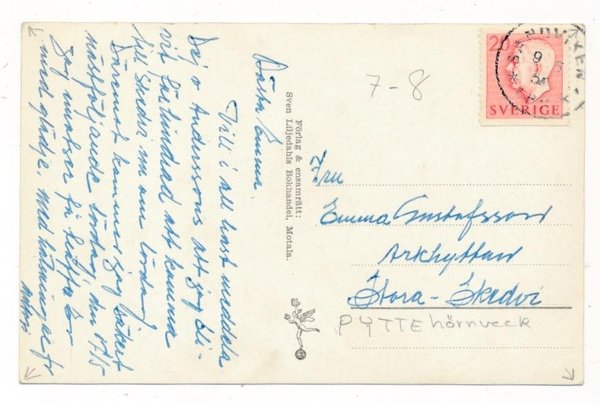 Bästa Emma.
Vill i all hast meddela
Dig o. Anderssons att jag bli-
vit förhindrad att komma
till Skedvi nu om lördag.
Däremot kommer jag säkert
nästföljande lördag, den 15/5
Jag ringer få träffa Er
med glädje. Med hälsningar fr.
Förlag & ensamrätt:
Sven Liljedahls Bokhandel, Motala.
7-8
20
SVERIGE
SANDVIKEN
9 5
54
Fru
Emma Gustafsson
Arkhyttan
Stora-Skedvi
PYTTE hörnveck